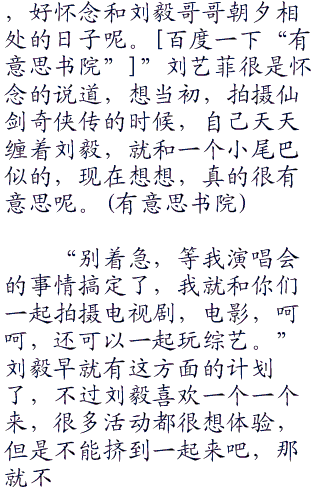 ，好怀念和刘毅哥哥朝夕相
处的日子呢。[百度一下“有
意思书院”]”刘艺菲很是怀
念的说道，想当初，拍摄仙
剑奇侠传的时候，自己天天
缠着刘毅，就和一个小尾巴
似的，现在想想，真的很有
意思呢。(有意思书院)
“别着急，等我演唱会
的事情搞定了，我就和你们
一起拍摄电视剧，电影，呵
呵，还可以一起玩综艺。”
刘毅早就有这方面的计划
了，不过刘毅喜欢一个一个
来，很多活动都很想体验，
但是不能挤到一起来吧，那
就不